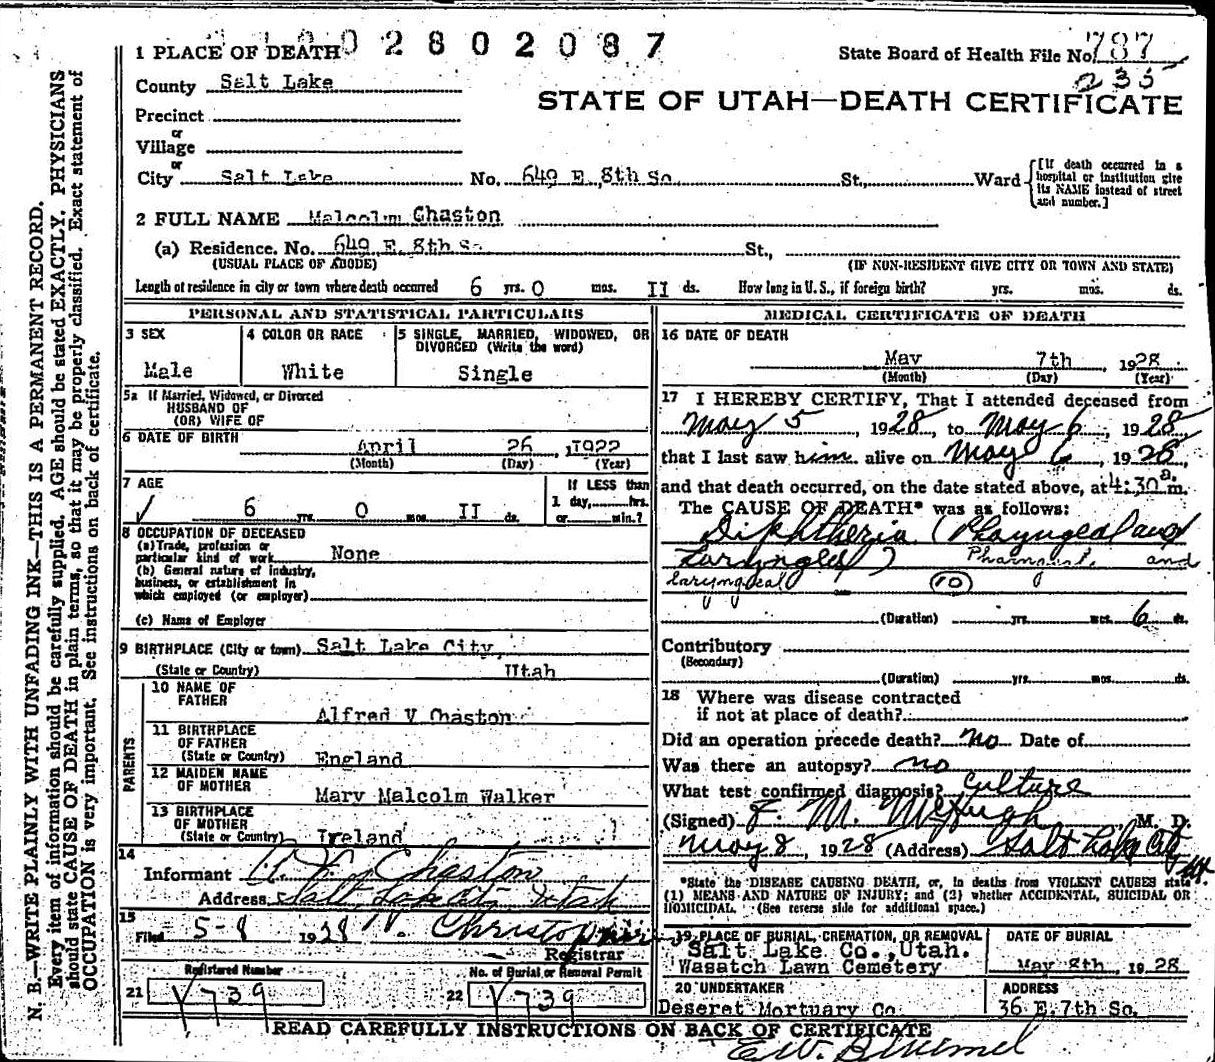 1 PLACE OF DEATH 002802087 State Board of Health File No 787
235
County Salt Lake
STATE OF UTAH—DEATH CERTIFICATE
Precinct
or
Village
or
City Salt Lake No. 649 E. 8th So. St., Ward
[If death occurred in a
hospital or institution give
its NAME instead of street
and number.]
2 FULL NAME Malcolm Chaston
(a) Residence. No. 649 E. 8th So St.,
(USUAL PLACE OF ABODE) (IF NON-RESIDENT GIVE CITY OR TOWN AND STATE)
Length of residence in city or town where death occurred 6 yrs. 0 mos. II ds. How long in U.S., if foreign birth? yrs. mos. ds.
PERSONAL AND STATISTICAL PARTICULARS
3 SEX
Male
4 COLOR OR RACE
White
5 SINGLE, MARRIED, WIDOWED, OR
DIVORCED (Write the word)
Single
5a If Married, Widowed, or Divorced
HUSBAND OF
(OR) WIFE OF
6 DATE OF BIRTH April 26, 1922
(Month) (Day) (Year)
7 AGE
6 yrs. 0 mos. II ds.
If LESS than
1 day, hrs.
or min.?
8 OCCUPATION OF DECEASED
(a) Trade, profession or
particular kind of work None
(b) General nature of industry,
business, or establishment in
which employed (or employer)
(c) Name of Employer
9 BIRTHPLACE (City or town) Salt Lake City,
(State or Country) Utah
PARENTS
10 NAME OF
FATHER
Alfred V Chaston
11 BIRTHPLACE
OF FATHER
(State or Country) England
12 MAIDEN NAME
OF MOTHER
Mary Malcolm Walker
13 BIRTHPLACE
OF MOTHER
(State or Country) Ireland
14
Informant A. V. Chaston
Address Salt Lake City Utah
15
Filed 5-8 1928
Registrar
Registered Number
21 V739
No. of Burial or Removal Permit
22 V739
MEDICAL CERTIFICATE OF DEATH
16 DATE OF DEATH
May 7th 1928
(Month) (Day) (Year)
17 I HEREBY CERTIFY, That I attended deceased from
May 5, 1928, to May 6, 1928
that I last saw him alive on May 6, 1928,
and that death occurred, on the date stated above, at 4:30 a.m.
The CAUSE OF DEATH* was as follows:
Diphtheria (Pharyngeal and
Laryngeal) and
laryngeal (10)
(Duration) yrs. mos. 6 ds.
Contributory
(Secondary)
(Duration) yrs. mos. ds.
18 Where was disease contracted
if not at place of death?
Did an operation precede death? no Date of
Was there an autopsy? no
What test confirmed diagnosis? Culture
(Signed) J. M. McHugh M. D.
May 8, 1928 (Address) Salt Lake City
Ut.
*State the DISEASE CAUSING DEATH, or, in deaths from VIOLENT CAUSES state
(1) MEANS AND NATURE OF INJURY; and (2) whether ACCIDENTAL, SUICIDAL OR
HOMICIDAL. (See reverse side for additional space.)
19 PLACE OF BURIAL, CREMATION, OR REMOVAL
Salt Lake Co., Utah.
Wasatch Lawn Cemetery
DATE OF BURIAL
May 8th, 1928
20 UNDERTAKER
Deseret Mortuary Co.
ADDRESS
36 E. 7th So.
READ CAREFULLY INSTRUCTIONS ON BACK OF CERTIFICATE
E.W.
N. B.—WRITE PLAINLY WITH UNFADING INK—THIS IS A PERMANENT RECORD.
Every item of information should be carefully supplied. AGE should be stated EXACTLY. PHYSICIANS
should state CAUSE OF DEATH in plain terms, so that it may be properly classified. Exact statement of
OCCUPATION is very important. See instructions on back of certificate.